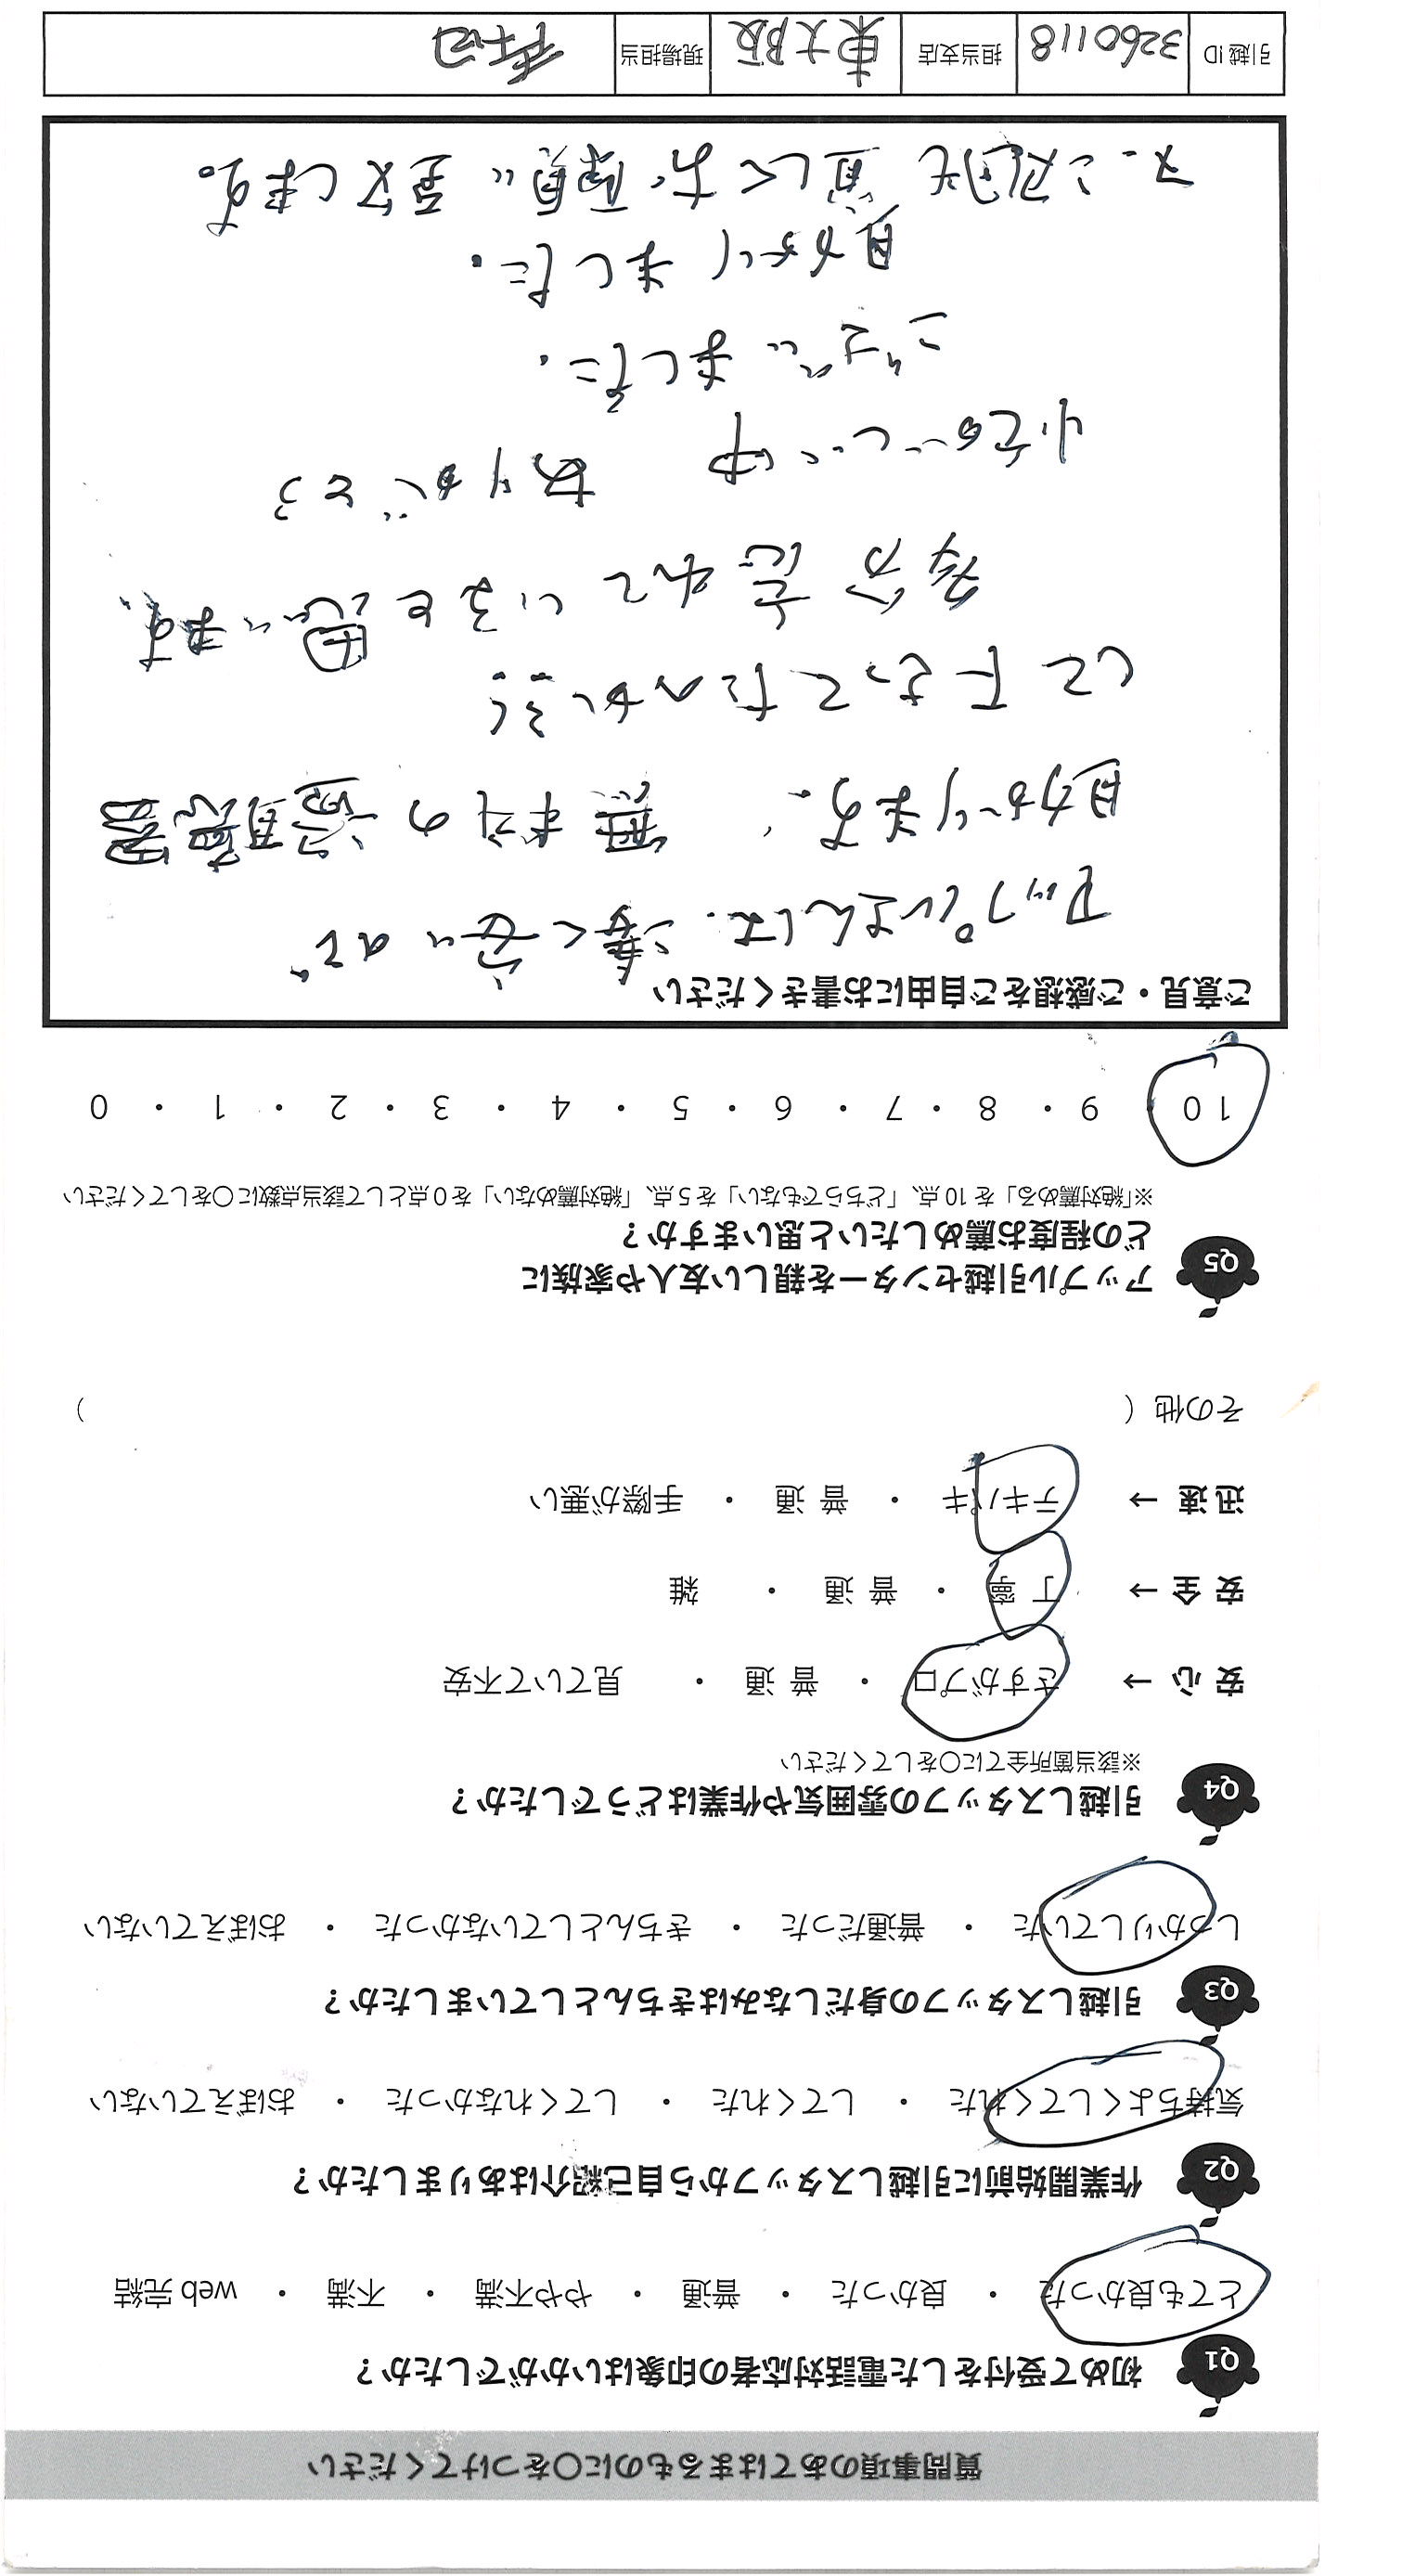 質問事項のあてはまるものに○をつけてください
Q1 初めて受付をした電話対応者の印象はいかがでしたか？
とても良かった ・ 良かった ・ 普通 ・ やや不満 ・ 不満 ・ web 完結
Q2 作業開始前に引越しスタッフから自己紹介はありましたか？
気持ちよくしてくれた ・ してくれた ・ してくれなかった ・ おぼえていない
Q3 引越しスタッフの身だしなみはきちんとしていましたか？
しっかりしていた ・ 普通だった ・ きちんとしていなかった ・ おぼえていない
Q4 引越しスタッフの雰囲気や作業はどうでしたか？
※該当箇所全てに○をしてください
安 心 → さすがプロ ・ 普 通 ・ 見ていて不安
安 全 → 丁 寧 ・ 普 通 ・ 雑
迅 速 → テキパキ ・ 普 通 ・ 手際が悪い
その他（ ）
Q5 アップル引越センターを親しい友人や家族に
どの程度お薦めしたいと思いますか？
※「絶対薦める」を 10 点、「どちらでもない」を 5 点、「絶対薦めない」を 0 点として該当点数に○をしてください
10 ・ 9 ・ 8 ・ 7 ・ 6 ・ 5 ・ 4 ・ 3 ・ 2 ・ 1 ・ 0
ご意見・ご感想をご自由にお書きください
アップルさんは、凄く安いので
助かります。無料の
して下さって
多分忘れていると思います。
中 ありがとう
ございました。
助かりました。
又、次回も宜しくお願い致します。
引越 ID 3260118 担当支店 東大阪 現場担当